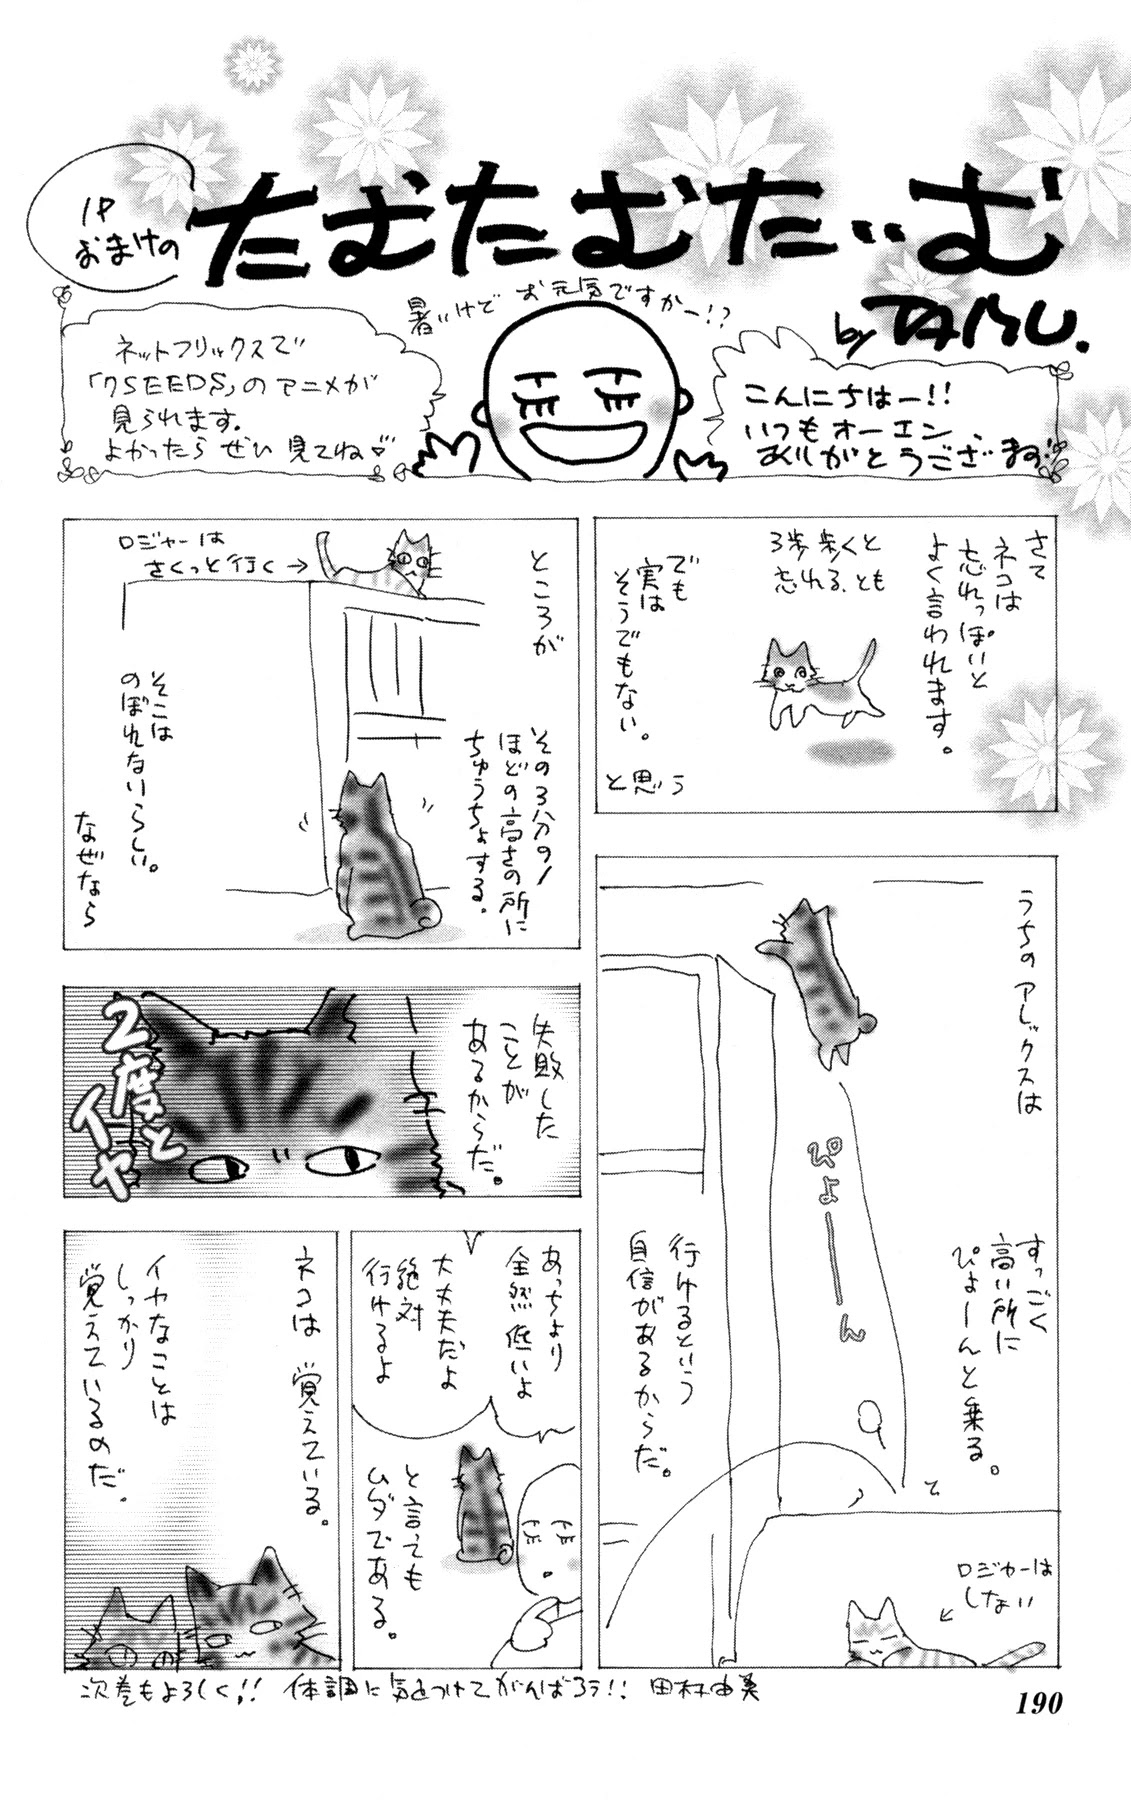 1P
おまけの
たむたむたいむ
by TAMU.
暑いけど お元気ですかー!?
こんにちはー!!
いつもオーエン、
ありがとうございます!
ネットフリックスで
「7SEEDS」のアニメが
見られます。
よかったら ぜひ 見てね♡
さて
ネコは
忘れっぽいと
よく言われます。
3歩歩くと
忘れる、とも
でも
実は
そうでもない。
と思う
うちのアレックスは
すっごく
高い所に
ぴょーんと乗る。
ぴょーーん
行けるという
自信があるからだ。
ロジャーは
しない
ところが
ロジャーは
さくっと行く→
その3分の1
ほどの高さの所に
ちゅうちょする。
そこは
のぼれないらしい。
なぜなら
失敗した
ことが
あるからだ。
2度と
イヤ
あっちより
全然低いよ
大丈夫だよ
絶対
行けるよ
と言っても
ムダである。
ネコは 覚えている。
イヤなことは
しっかり
覚えているのだ。
次巻もよろしく!! 体調に気をつけてがんばろう!! 田村由美
190